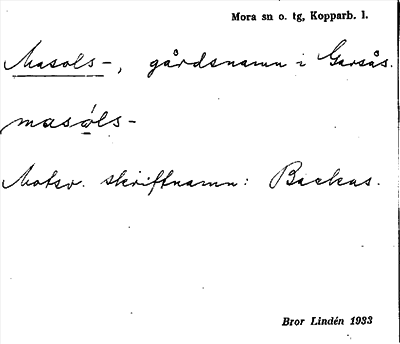 Mora sn o. tg, Kopparb. l.
Masols-, gårdsnamn i Garsås.
masóls-
Motsv. skriftnamn: Backas.
Bror Lindén 1933